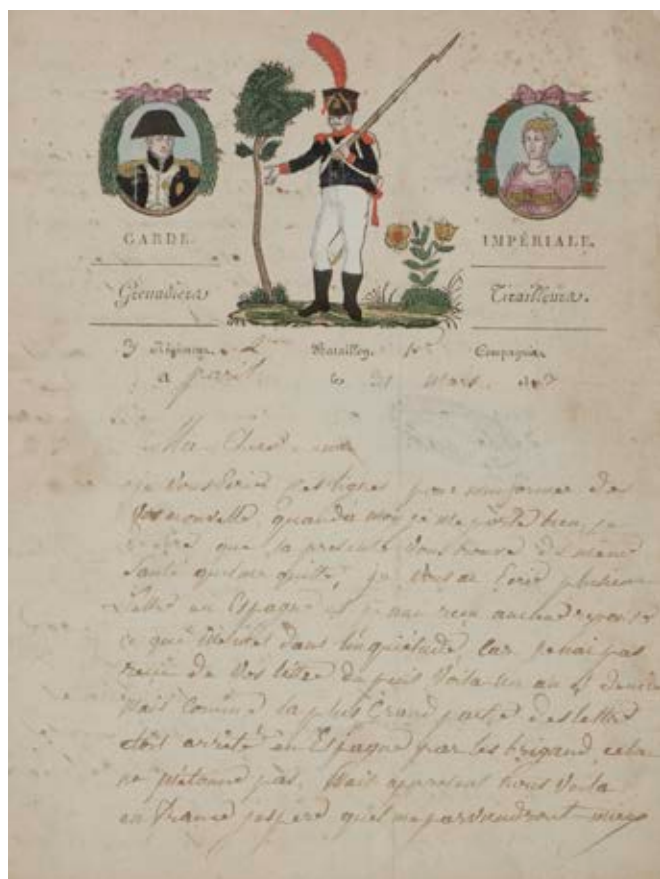 GARDE
IMPÉRIALE.
Grenadiers
Tirailleurs.
Régiment. Bataillon. Compagnie
a paris le 31 mars
Mon Cher
je vous Écrie ses lignes pour minformer des
vos nouvelle quanda moi je me porte bien, je
que la presente vous trouve de même
santé quelme quitte, je vous ai Écrie plusieur
Lettre en Espagne et je nai recu aucune reponse
ce qui dans linquiétude Car je nai pas
recue de vos lettre depuis voila un an et demie
Mais Comme la plus Grand partie des lettre
était arrêté en Espagne par les brigand cela
ne métonne pas, Mais appresent nous voila
en France jespere quel me parviendront mieux